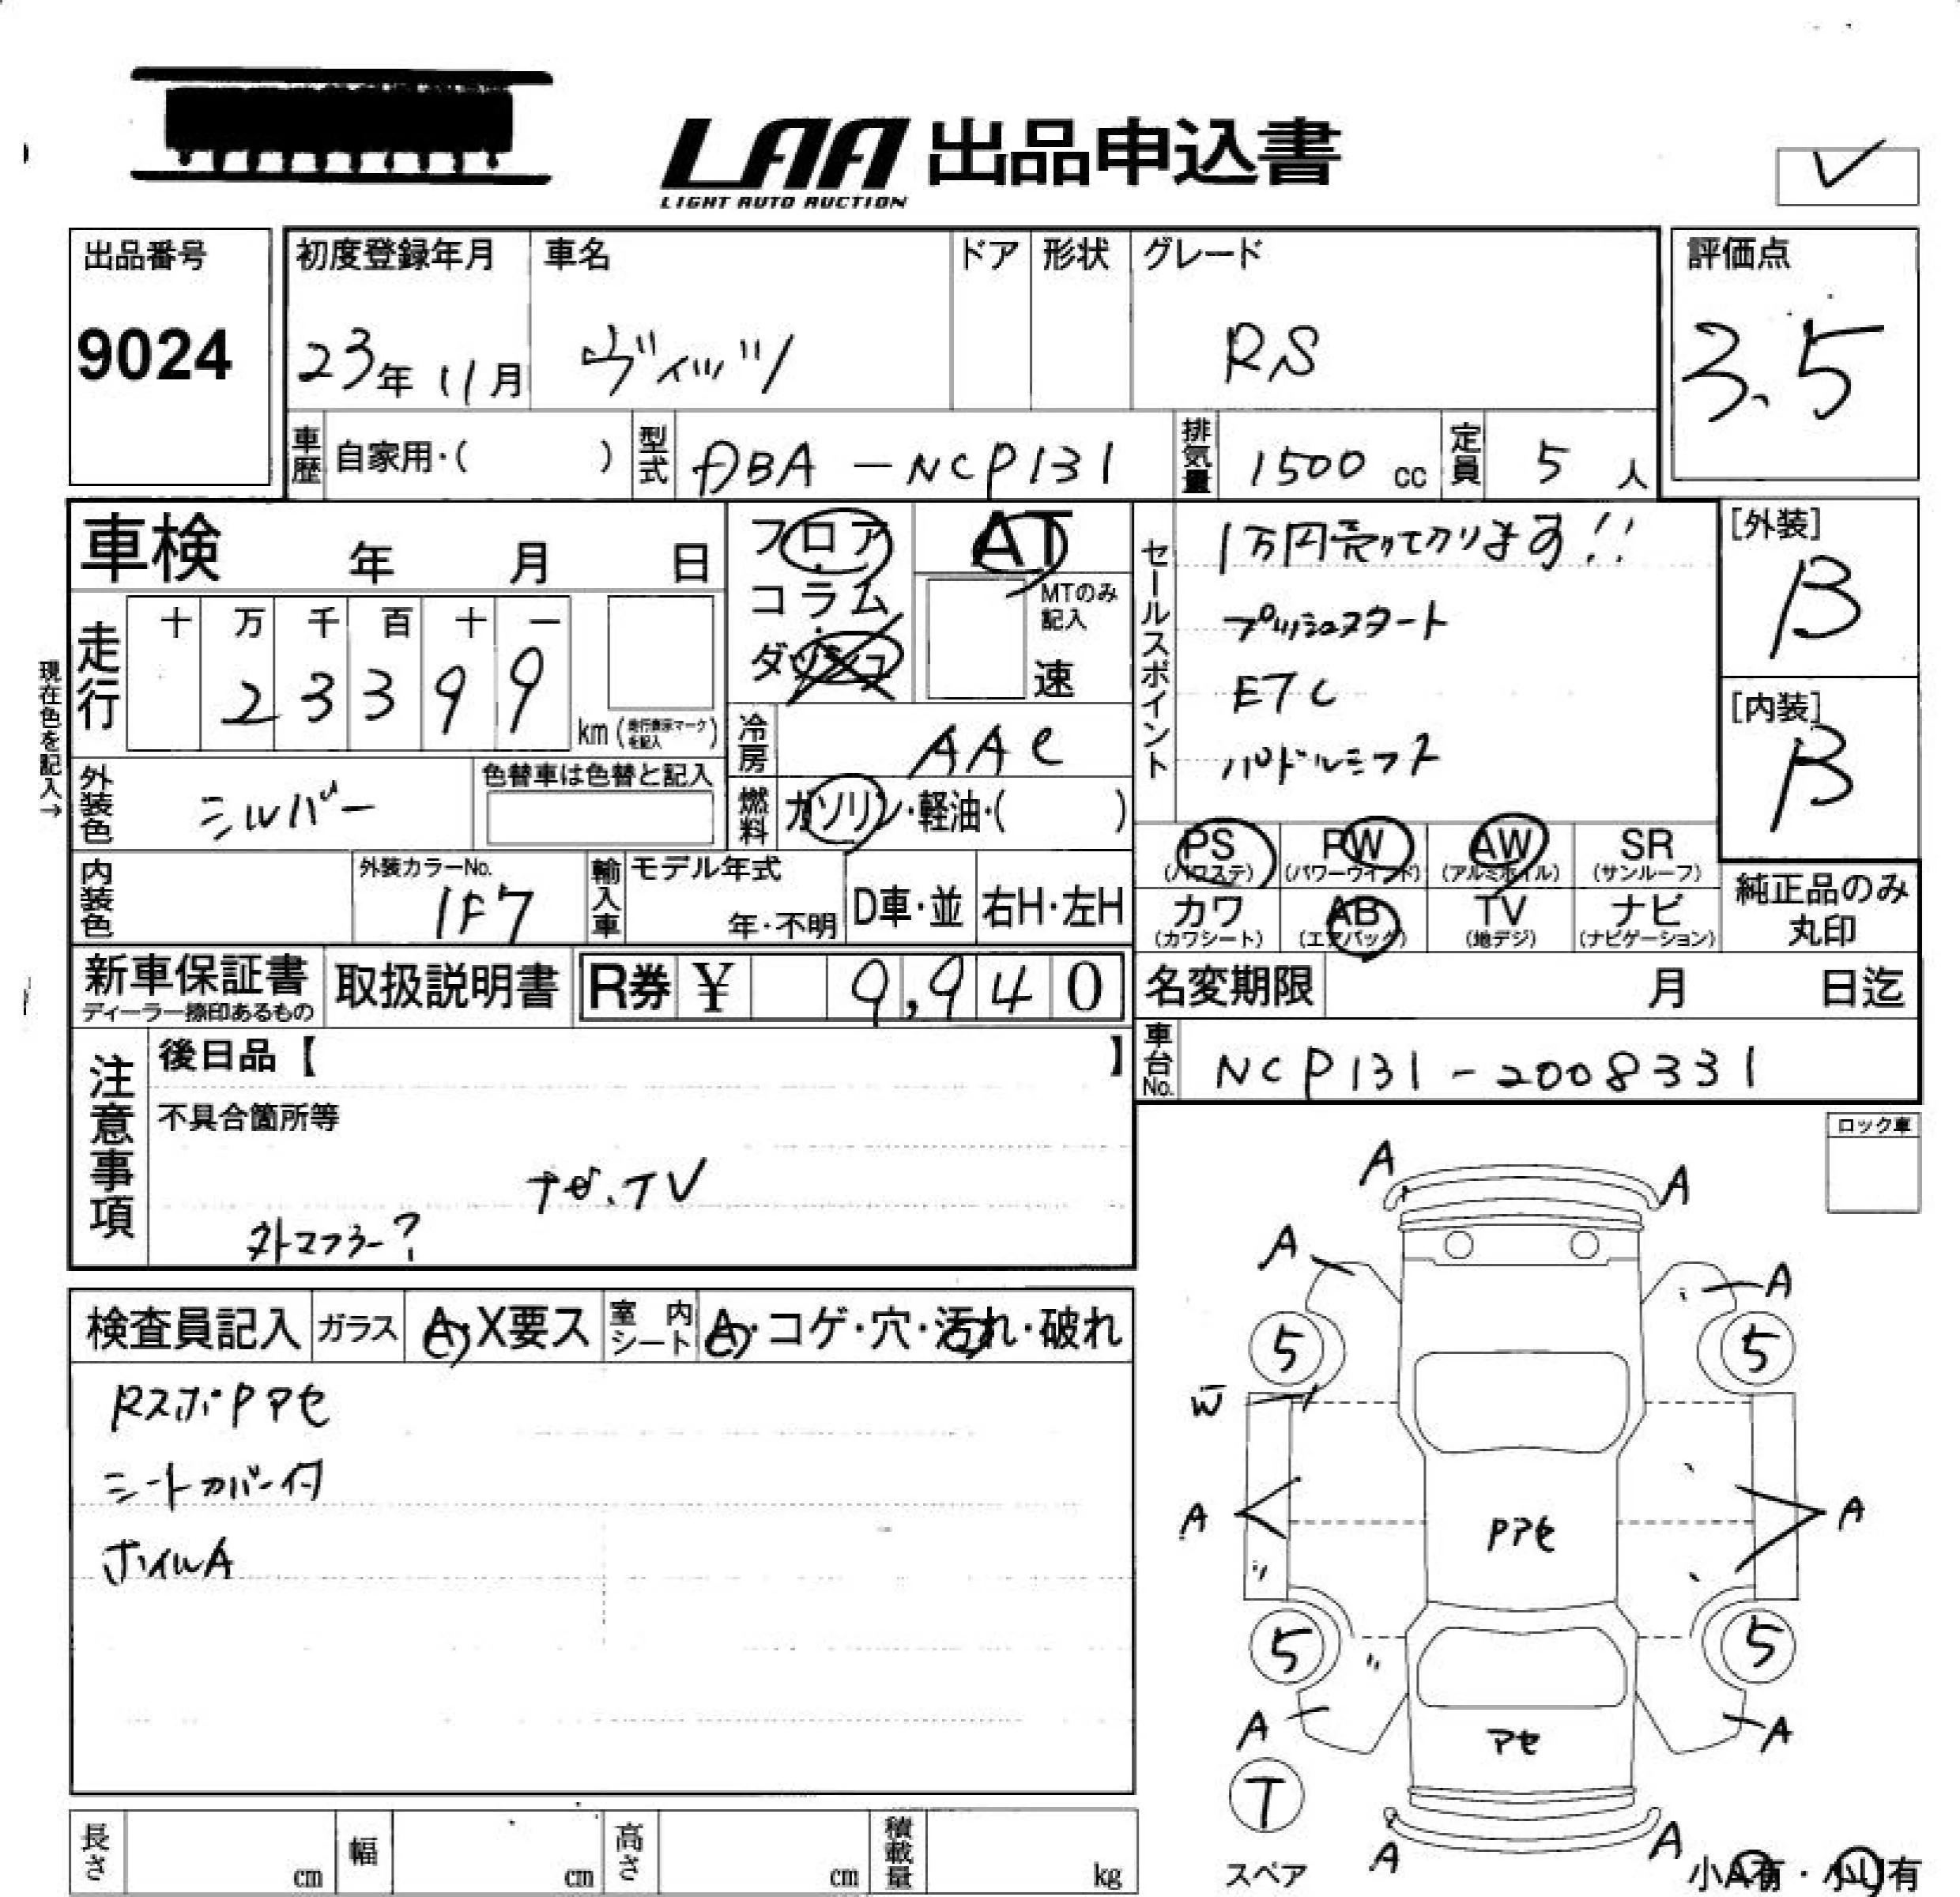 LAA 出品申込書
LIGHT AUTO AUCTION
出品番号
9024
初度登録年月
23年 11月
車名
ヴィッツ
ドア
形状
グレード
RS
評価点
3.5
車歴 自家用・( )
型式 DBA-NCP131
排気量 1500 cc
定員 5 人
車検 年 月 日
フロア
コラム
ダッシュ
AT
MTのみ記入
速
セールスポイント
1万円売ってかります!!
プッシュスタート
ETC
パドルシフト
[外装]
B
[内装]
B
現在色を記入→
走行
十 万 千 百 十 一
2 3 3 9 9
km (走行表示マークを記入)
冷房 AAC
外装色 シルバー
色替車は色替と記入
燃料 ガソリン・軽油・( )
PS (パワステ)
PW (パワーウインド)
AW (アルミホイル)
SR (サンルーフ)
カワ (カワシート)
AB (エアバック)
TV (地デジ)
ナビ (ナビゲーション)
純正品のみ丸印
内装色
外装カラーNo.
1F7
輸入車
モデル年式
年・不明
D車・並
右H・左H
新車保証書
ディーラー捺印あるもの
取扱説明書
R券 ¥ 9,940
名変期限 月 日迄
車台No. NCP131-2008331
注意事項
後日品【 】
不具合箇所等
ナビ、TV
外マフラー?
ロック車
検査員記入
ガラス A・X要ス
室内シート A・コゲ・穴・汚れ・破れ
RスポPアセ
シートカバー付
ホイルA
A A
A A
5 5
W
A A
Pアセ
5 5
A A
アセ
T
スペア
A A
小A有・小U有
長さ cm
幅 cm
高さ cm
積載量 kg